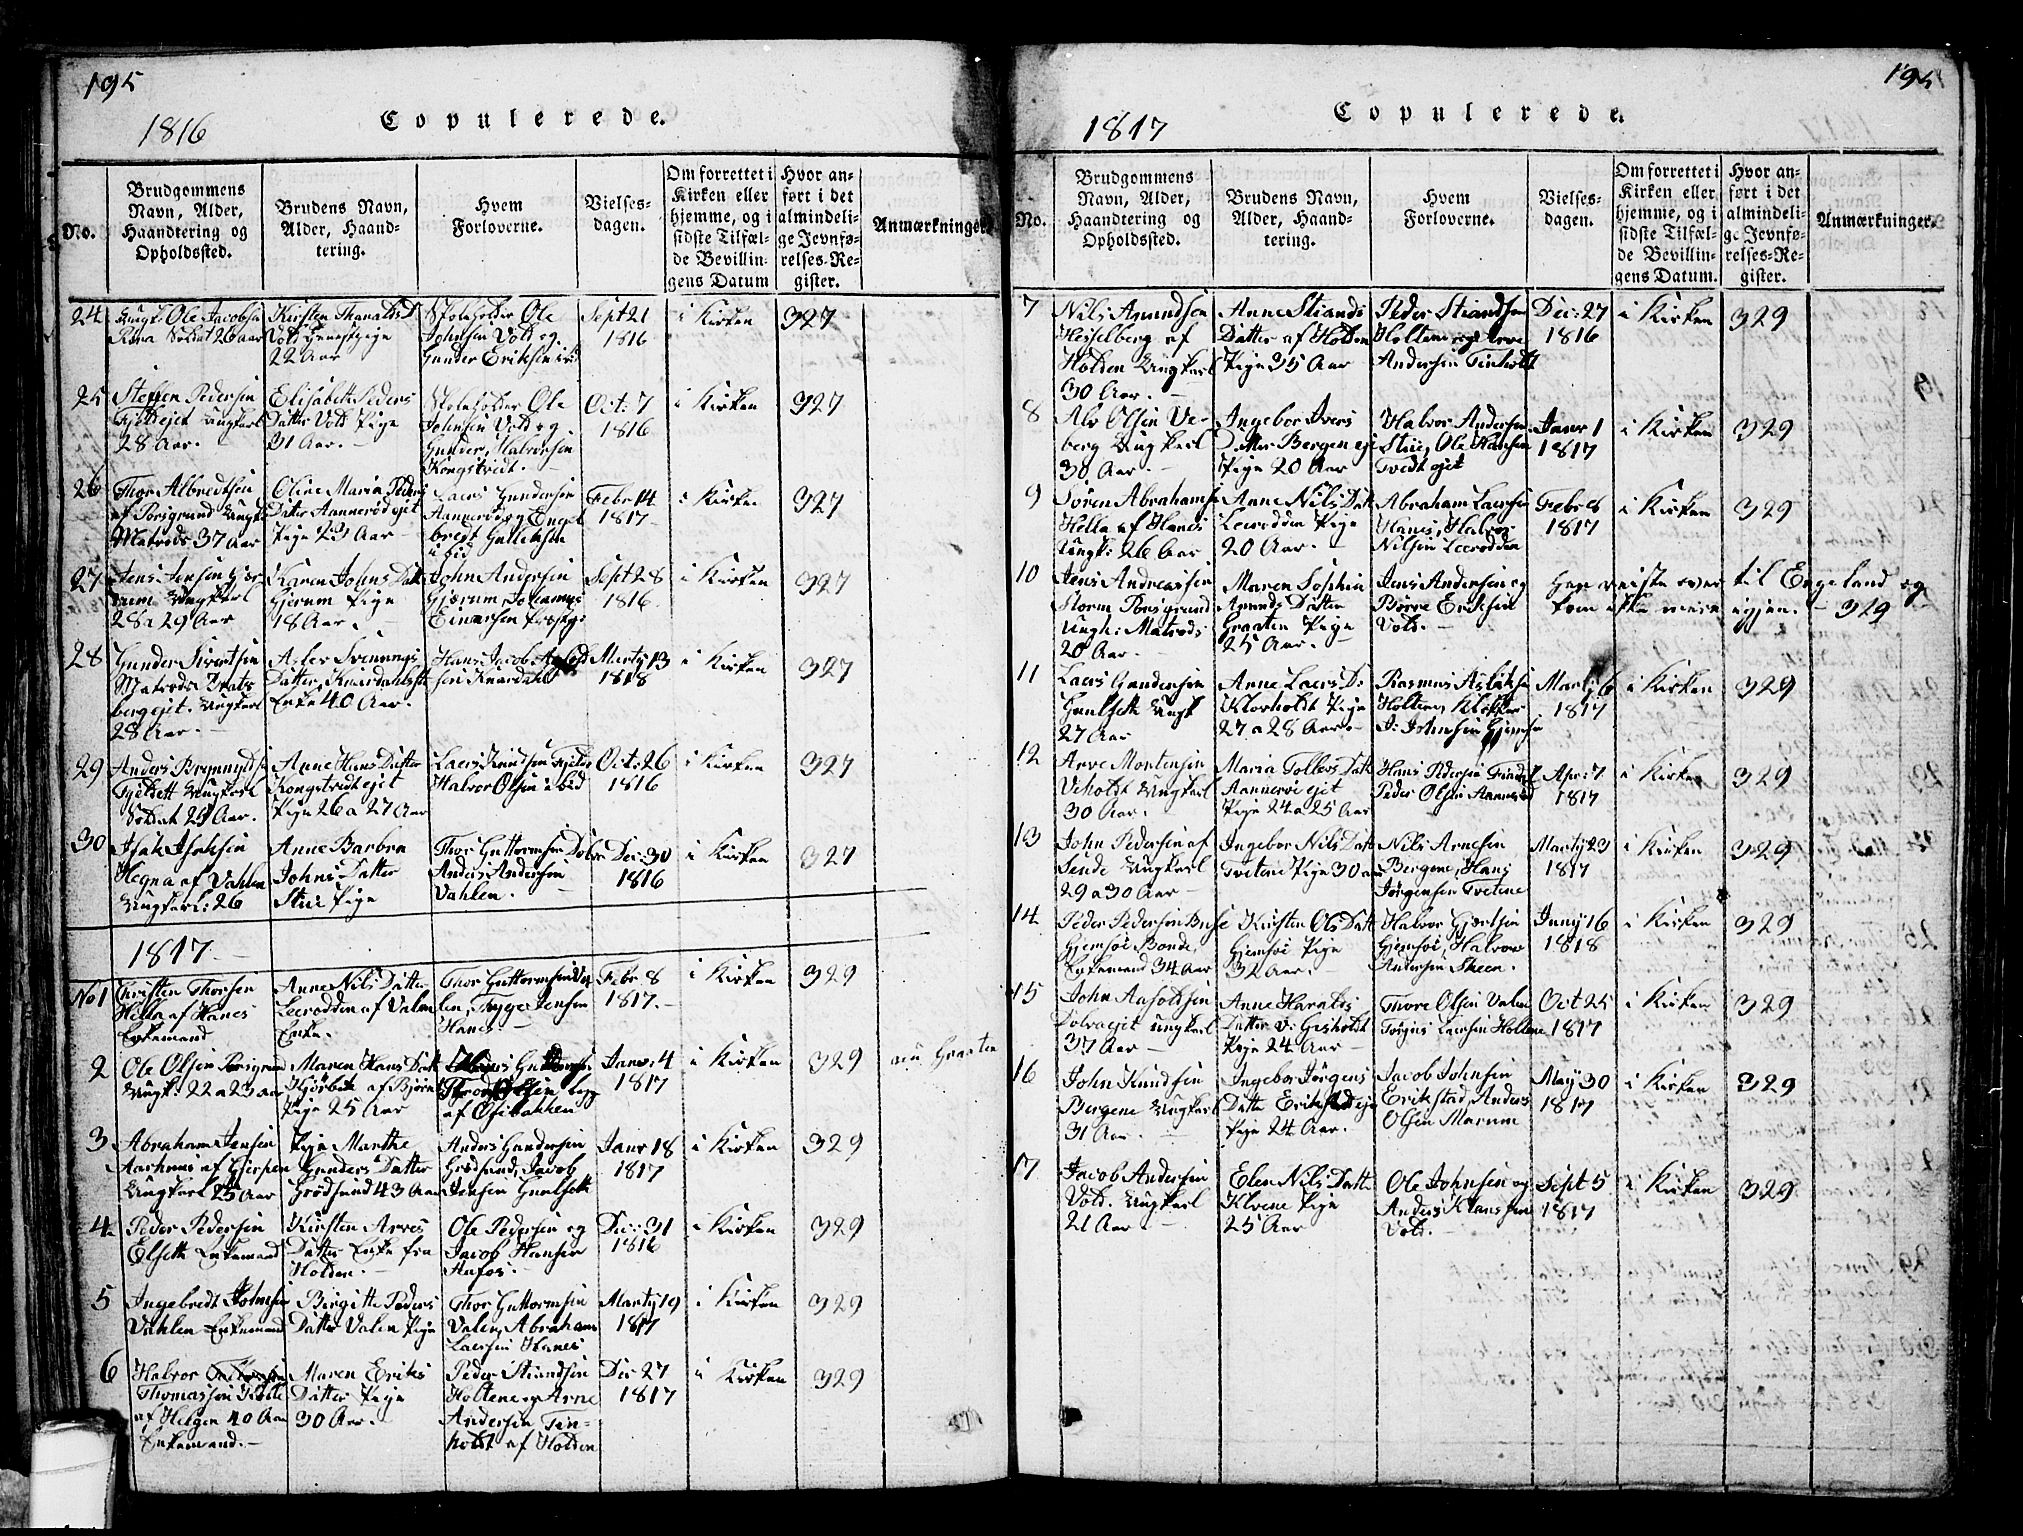 195
1816
Copulerede.
No.
Brudgommens
Navn, Alder,
Haandtering og
Opholdssted.
Brudens Navn,
Alder, Haand-
tering.
Hvem
Forloverne.
Vielses-
dagen.
Om forrettet i
Kirken eller
hjemme, og i
sidste Tilfæl-
de Bevillin-
gens Datum
Hvor an-
ført i det
almindeli-
ge Jevnfø-
relses-Re-
gister.
Anmærkninger.
24
Ungk: Ole Jacobsen
Soldat 26 aar
Kirsten
Vold Pige
22 Aar
Skoleholder Ole
Johnsen Vold og
Gunder Eriksen
Sept 21
1816
i Kirken
327
25
Steffen Pedersen
Fjeldejet ungkarl
28 Aar.
Elisabeth Peders
Datter Vold Pige
31 Aar.
Skoleholder Ole
Johnsen Vold og
Gunder Halvorsen
Kongstvedt.
Oct: 7
1816
i Kirken
327
26
Thor Albredtsen
af Porsgrund Ungk:
Matrods 37 Aar
Oline Maria Peders
Datter Aannerødejet
Pige 23 Aar
Lars Gundersen
Aannerød og Engel
bredt Gulleksen
Febr 14
1817
i Kirken
327
27
Jens Jensen Gjør-
rum Ungkarl
28 a 29 Aar
Karen Johns Datt:
Gjerum Pige
18 Aar.
John Andersen
Gjærum, Johannes
Einersen
Sept 28
1816.
i Kirken
327
28
Gunder Sivertsen
Matrods Brats
bergejet. Ungkarl
28 Aar.
Aslev Svennings
Datter, Knardal
Enke 40 Aar.
Hans Jacob
sen Knardal
Marty 13
1818
i Kirken
327
29
Anders Brynnyld
Fjeldett Ungkarl
Soldat 25 Aar.
Anne Hans Datter
Kongstvedt ejet
Pige 26 a 27 Aar
Lars Knudsen
Halvor Olsen ibid
Oct: 26
1816
i Kirken
327
30
Isak Isaksen
Hegna af Vahlen
Ungkarl: 26
Anne Barbra
Johns Datter
Stue Pige
Thor Guttormsen Dolva
Anders Andersen
Vahlen.
Dec: 30
1816
i Kirken
327
1817.
No 1
Christen Thorsen
Hella af Hanes
Enkemand
Anne Nils Datter
Leerodden af Valen
Enke.
Thor Guttormsen Va
len, Tygge Jensen
Hanes
Febr 8
1817.
i Kirken
329
2
Ole Olsen Porsgrund
Ungk: 22 a 23 aar
Maren Hans Datt
Hjørbek af Bjørn
Pige 25 Aar
Guttormsen
Olsen
af Osebakken
Janv: 4
1817
i Kirken
329
nu Graaten
3
Abraham Jensen
Aarhuus af Gjerpen
Ungkarl 25 Aar
Pige Marthe
Gunders Datter
Grødsund 43 Aar
Anders Gundersen
Grødsund, Jacob
Jensen Gunlseth
Janv 18
1817
i Kirken
329
4.
Peder Pedersen
Elseth Enkemand
Kirsten Arves
Datter Enke fra
Holden.
Ole Pedersen og
Jacob Hansen
Aafos.
Dec: 31
1816
i Kirken
329
5
Ingebredt Johnsen
Vahlen Enkemand
Birgitte Peders
Datter Valen Pige
Thor Guttormsen
Valen, Abraham
Laersen Hanes
Marty 19
1817
i Kirken
329
6
Halvor
Thomassen
af Helgen 40 Aar
Enkemand.
Maren Eriks
Datter Pige
30 Aar.
Peder Stiandsen
Holtene og Arne
Andersen Tin-
holdt af Holden
Dec 27
1817
i Kirken
329
195
1817
Copulerede.
No.
Brudgommens
Navn, Alder,
Haandtering og
Opholdssted.
Brudens Navn,
Alder, Haand-
tering.
Hvem
Forloverne.
Vielses-
dagen.
Om forrettet i
Kirken eller
hjemme, og i
sidste Tilfæl-
de Bevillin-
gens Datum.
Hvor an-
ført i det
almindeli-
ge Jevnfø-
relses-Re-
gister.
Anmærkninger.
7
Nils Amundsen
Hesselberg af
Holden Ungkarl
30 Aar.
Anne Stiands
Datter af Holden
Pige 35 Aar
Peder Stiandsen
Holtene og Arve
Andersen Tinholt
Dec: 27
1816
i Kirken
329
8
Alv Olsen Ve-
berg Ungkarl
30 Aar.
Ingebor Ivers
Datter Bergen ejet
Pige 20 Aar
Halvor Andersen
Stue, Ole Hansen
Tvedt ejet
Janv 1
1817
i Kirken
329
9
Søren Abrahamsen
Hella af Hanes
Ungk: 26 Aar
Anne Nils Datt
Leerodden Pige
20 Aar.
Abraham Laersen
Hanes, Halvor
Nilsen Leerodden
Febr 8
1817
i Kirken
329
10
Jens Andreassen
Storm Porsgrund
Ungk: Matrods
20 Aar.
Maren Sophia
Amunds Datter
Graaten Pige
25 Aar.
Jens Andersen og
Børre Eriksen
Vold.
Han reiste over til Engeland og
kom ikke mere igjen. – 329
11
Laers Gundersen
Gunlseth Ungk
27 Aar
Anne Laers D:
Klovholdt Pige
27 a 28 Aar.
Rasmus Aslaksen
Holten, Klokker
J: Johnsen Gjemsø
Marty 6
1817
i Kirken
329
12
Arve Mortensen
Veholdt Ungkarl
30 Aar.
Maria Tollevs Datt
Aannerøe ejet
Pige 24 a 25 Aar
Hans Pedersen
Peder Olsen Aannerød
Apr: 7
1817
i Kirken
329
13
John Pedersen af
Sende Ungkarl
29 a 30 Aar
Ingebor Nils Datt
Tvetene Pige 30 aar
Nils Arnesen
Bergene, Hans
Jørgensen Tvetene
Marty 23
1817
i Kirken
329
14
Peder Pedersen Buse
Gjemsøe Bonde
Enkemand 34 Aar
Kirsten Ols Datt
Gjemsøe Pige
32 Aar.
Halvor Gjertsen
Gjemsøe, Halvor
Andersen Skeen.
Juny 16
1818
i Kirken
329
15
John Aasoldsen
Dolva ejet Ungkarl
37 Aar
Anne Haralds
Datter v: Gisholdt
Pige 24 Aar
Thore Olsen Valen
Torgius Laersen Holtene
Oct 25
1817
i Kirken
329
16
John Knudsen
Bergene Ungkarl
31 Aar.
Ingebor Jørgens
Datter Erikstad ejet
Pige 24 Aar.
Jacob Johnsen
Erikstad, Anders
Olsen Marum
May 30
1817
i Kirken
329
17
Jacob Andersen
Vold. Ungkarl
21 Aar
Elen Nils Datt
Klevene Pige
25 Aar
Ole Johnsen og
Anders Klausen
Vold.
Sept 5
1817
i Kirken
329